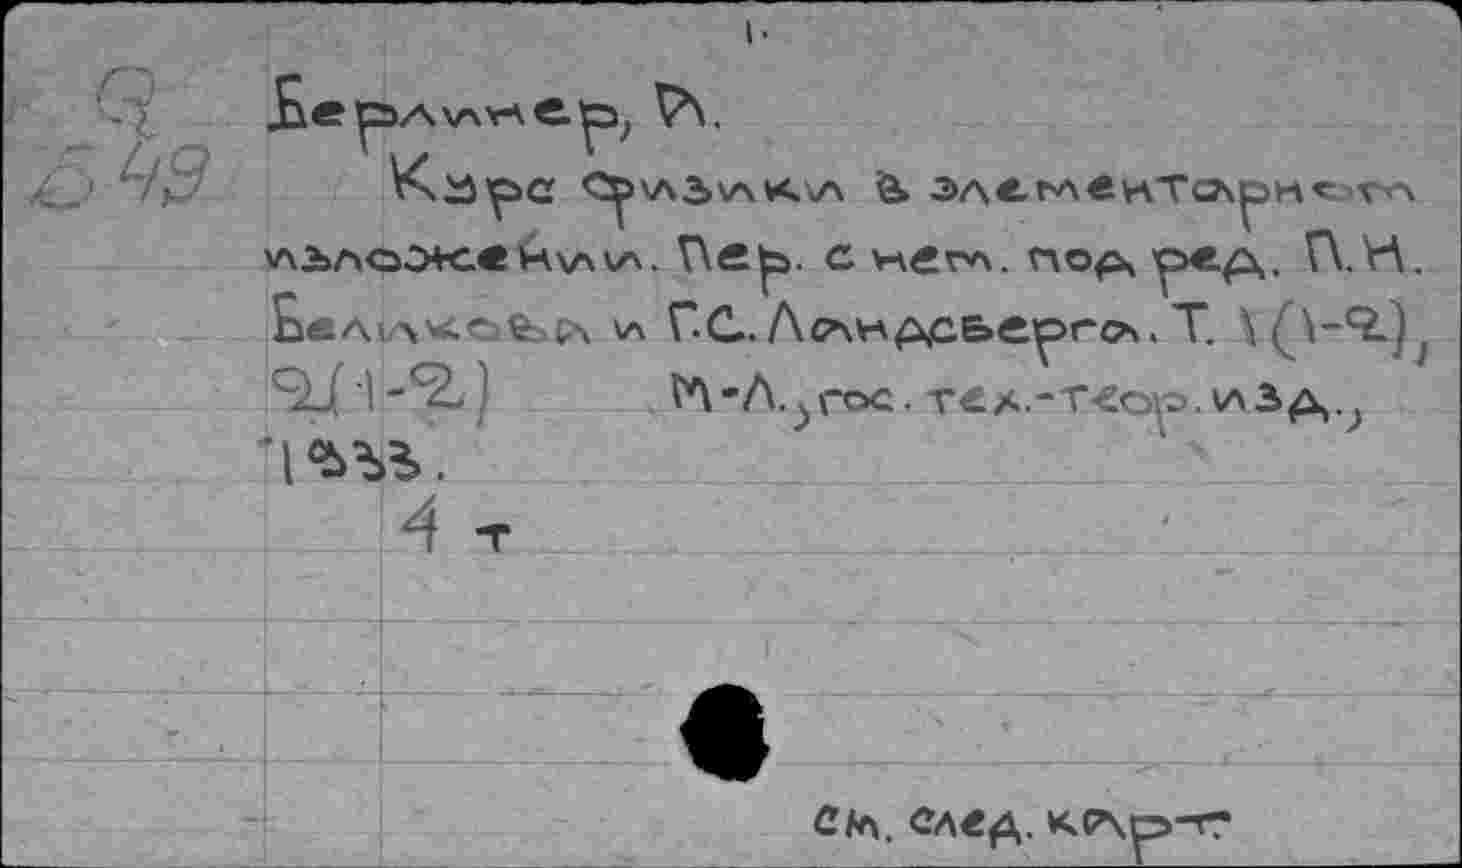 1.
Берлинер, А.
Курс физики в элементарном
изложении. Пер. с нем. под ред. П.Н.
Беликова и Г.С. Ландсберга. Т. 1(1-2),
2(1-2) М-Л., гос. тех.-теор. изд.,
1933.
4 т
См. след. карт.